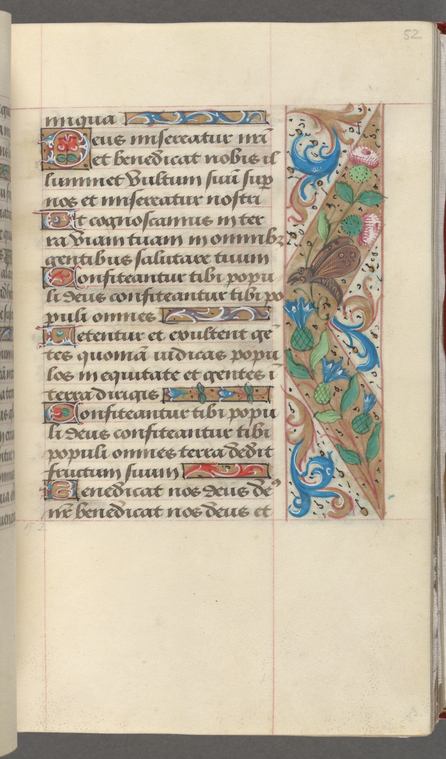 52
iniqua
Deus misereatur nr̄i
et benedicat nobis il
luminet vultum suū sup
nos et misereatur nostri
Ut cognoscamus in ter
ra viam tuam in omnibz
gentibus salutare tuum
Confiteantur tibi popu
li deus confiteantur tibi po
puli omnes
Letentur et exultent gē
tes quoniā iudicas popu
los in equitate et gentes ī
terra dirigis
Confiteantur tibi popu
li deus confiteantur tibi
populi omnes terra dedit
fructum suum
Benedicat nos deus de⁹
nr̄ benedicat nos deus et